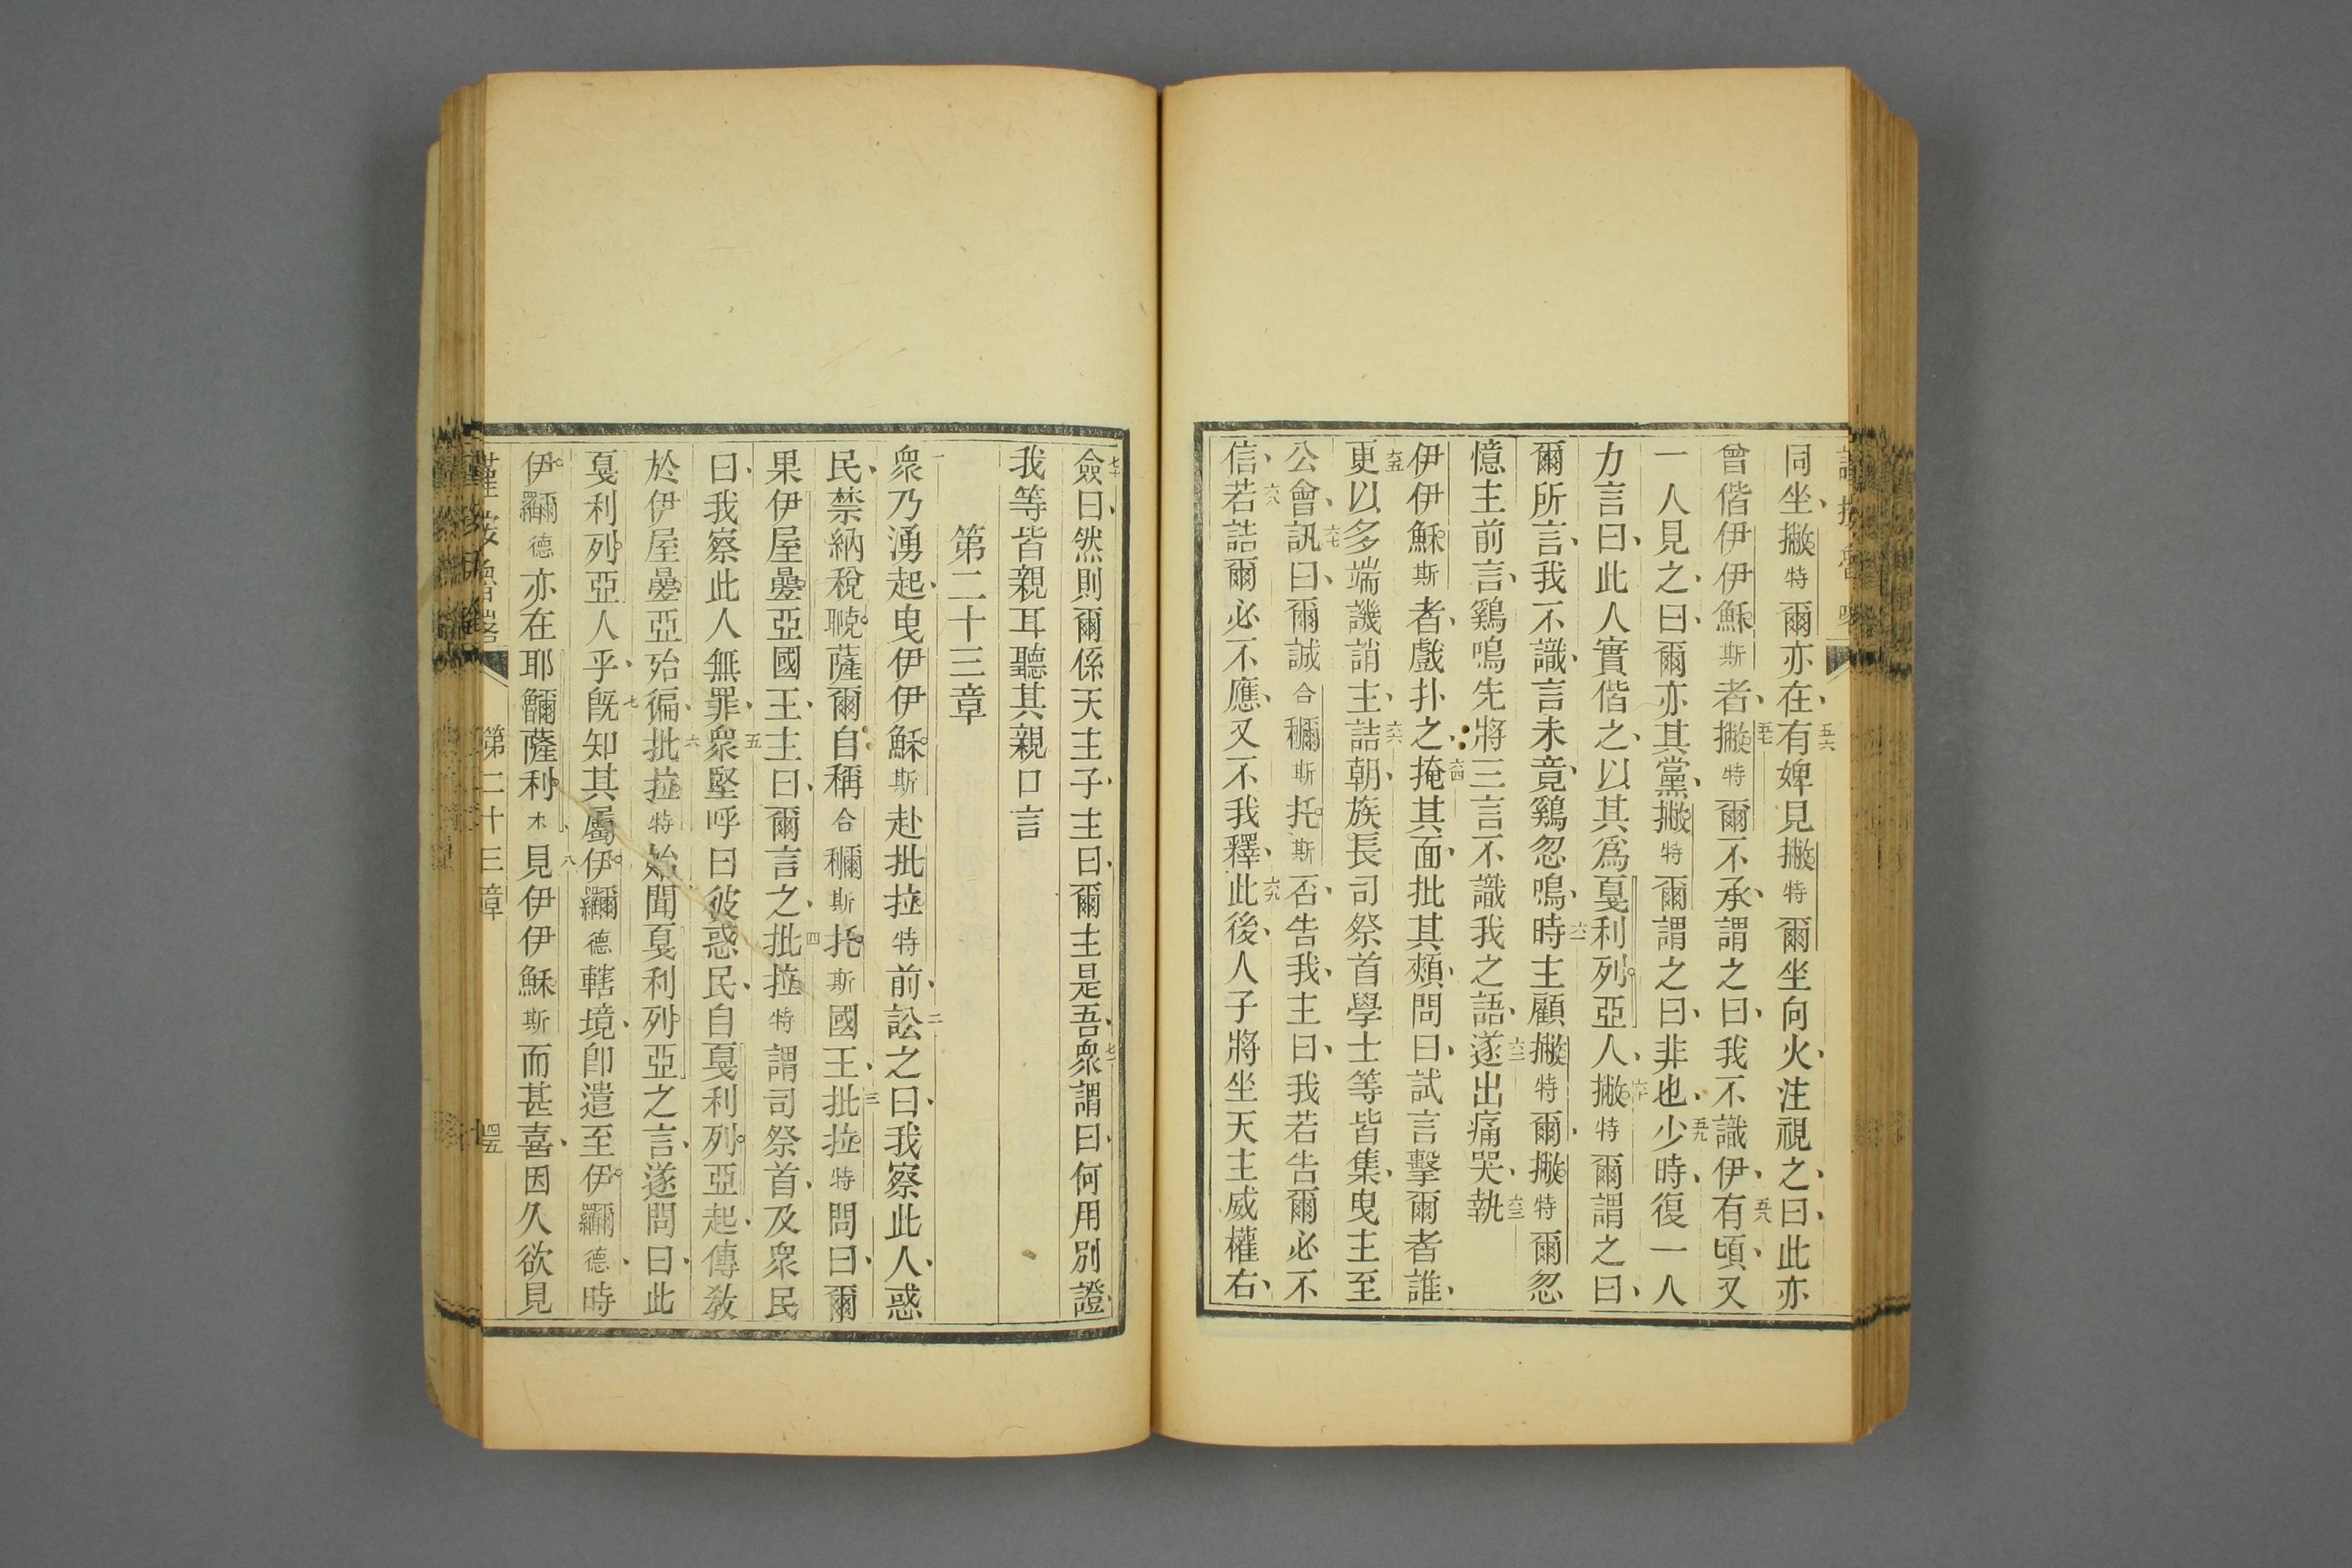 同坐、撇特爾亦在、五六有婢見撇特爾坐向火、注視之、曰、此亦
曾偕伊伊穌斯者、五七撇特爾不承、謂之曰、我不識伊、五八有頃、又
一人見之、曰、爾亦其黨、撇特爾謂之曰、非也、五九少時、復一人
力言曰、此人實偕之、以其為戛利列亞人、六十撇特爾謂之曰、
爾所言、我不識、言未竟、鷄忽鳴、六一時主顧撇特爾、撇特爾忽
憶主前言、鷄鳴先將三言不識我之語、六二遂出痛哭、六三執
伊伊穌斯者、戲扑之、六四掩其面、批其頰、問曰、試言擊爾者誰、
六五更以多端譏誚主、六六詰朝、族長司祭首學士等皆集、曳主至
公會、六七訊曰、爾誠合穪斯托斯否、告我、主曰、我若告爾必不
信、六八若詰爾必不應、又不我釋、六九此後、人子將坐天主威權右、
七十僉曰、然則爾係天主子、主曰、爾主是吾、七一衆謂曰、何用別證、
我等皆親耳聽其親口言
第二十三章
一衆乃湧起、曳伊伊穌斯赴批拉特前、二訟之曰、我察此人、惑
民、禁納稅薩爾、自稱合穪斯托斯國王、三批拉特問曰、爾
果伊屋疊亞國王、主曰、爾言之、四批拉特謂司祭首、及衆民
曰、我察此人無罪、五衆堅呼曰、彼惑民、自戛利列亞起、傳教
於伊屋疊亞殆徧、六批拉特始聞戛利列亞之言、遂問曰、此
戛利列亞人乎、七既知其屬伊德轄境、卽遣至伊德、時
伊德亦在耶薩利木、八見伊伊穌斯而甚喜、因久欲見
第二十三章
四五